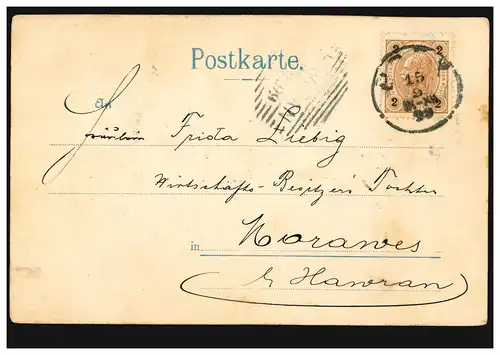 Postkarte.
2 2
15
2
99
2 2
An
Fräulein Frida Liebig
Wirtschafts-Besitzers Tochter
in Morawes
b/ Hawran